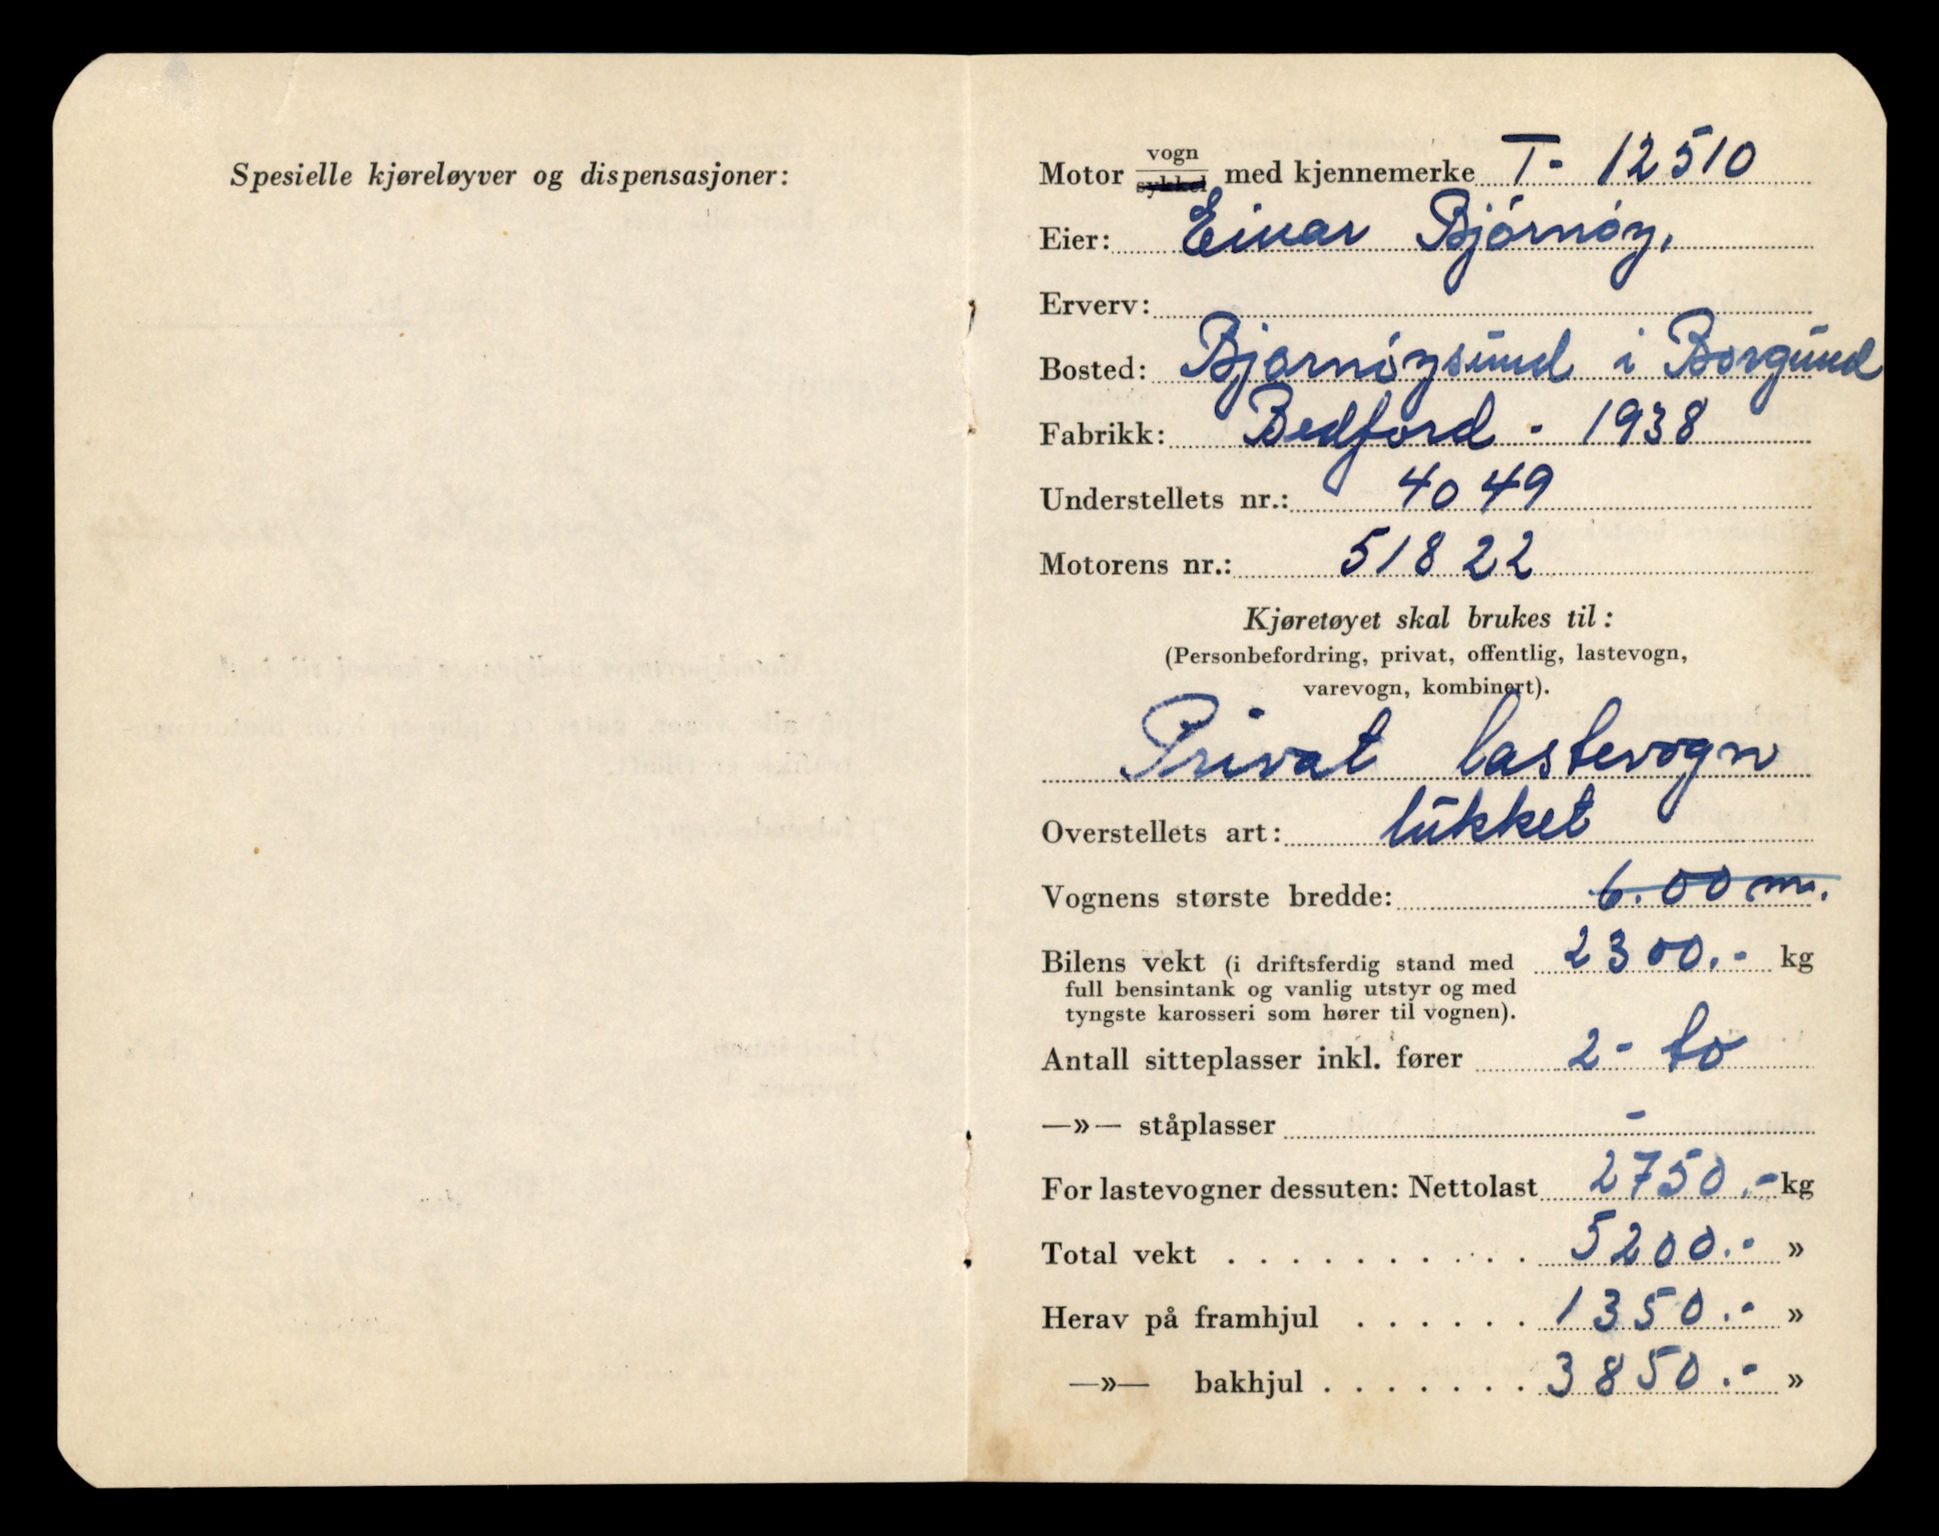 Spesielle kjøreløyver og dispensasjoner:
Motor vogn/sykkel med kjennemerke T- 12510
Eier: Einar Bjørnøy.
Erverv:
Bosted: Bjørnøysund i Borgund
Fabrikk: Bedford - 1938
Understellets nr.: 4049
Motorens nr.: 51822
Kjøretøyet skal brukes til:
(Personbefordring, privat, offentlig, lastevogn,
varevogn, kombinert).
Privat lastevogn
Overstellets art: lukket
Vognens største bredde: 6.00 m.
Bilens vekt (i driftsferdig stand med 2300.- kg
full bensintank og vanlig utstyr og med
tyngste karosseri som hører til vognen).
Antall sitteplasser inkl. fører 2- to
—»— ståplasser -
For lastevogner dessuten: Nettolast 2750.- kg
Total vekt . . . . . . . . . . 5200.- »
Herav på framhjul . . . . . . 1350.- »
—»— bakhjul . . . . . . . 3850.- »